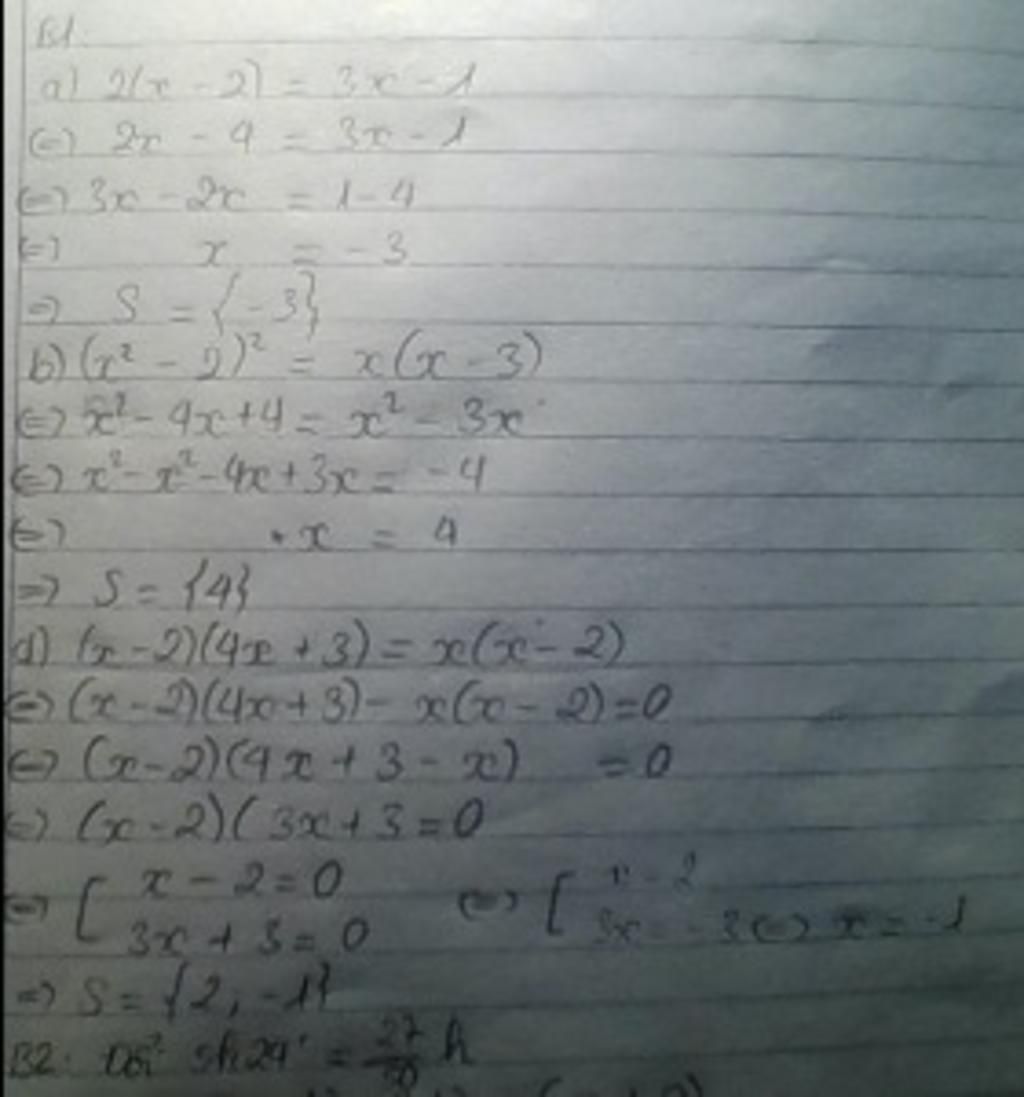 B1:
a) 2(x - 2) = 3x - 1
(=) 2x - 4 = 3x - 1
(=) 3x - 2x = 1 - 4
(=) x = -3
=) S = {-3}
b) (x² - 2)² = x(x - 3)
(=) x² - 4x + 4 = x² - 3x
(=) x² - x² - 4x + 3x = -4
(=) x = 4
=) S = {4}
d) (x - 2)(4x + 3) = x(x - 2)
(=) (x - 2)(4x + 3) - x(x - 2) = 0
(=) (x - 2)(4x + 3 - x) = 0
(=) (x - 2)(3x + 3 = 0
(=) [ x - 2 = 0 (=) [ x = 2
3x + 3 = 0 3x = -3 (=) x = -1
=) S = {2, -1}
B2: Đổi = h